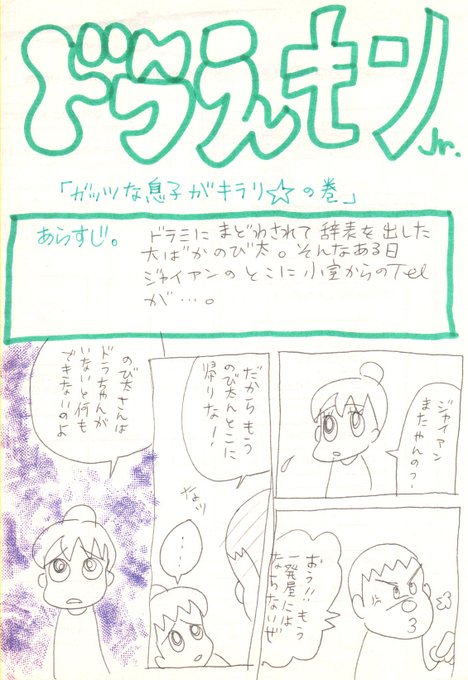 ドラえキン
Jr.
「ガッツな息子がキラリ☆の巻」
あらすじ。
ドラミにまどわされて辞表を出した
大ばかのび太。そんなある日
ジャイアンのとこに小室からのTel
が…。
ジャイアン
またやんの?
おう!!もう
一発屋にょ
ならないぜ
だからもう
のび太んとこに
帰りな!
なッ
…
のび太さんは
ドラちゃんが
いないと何も
できないのよ